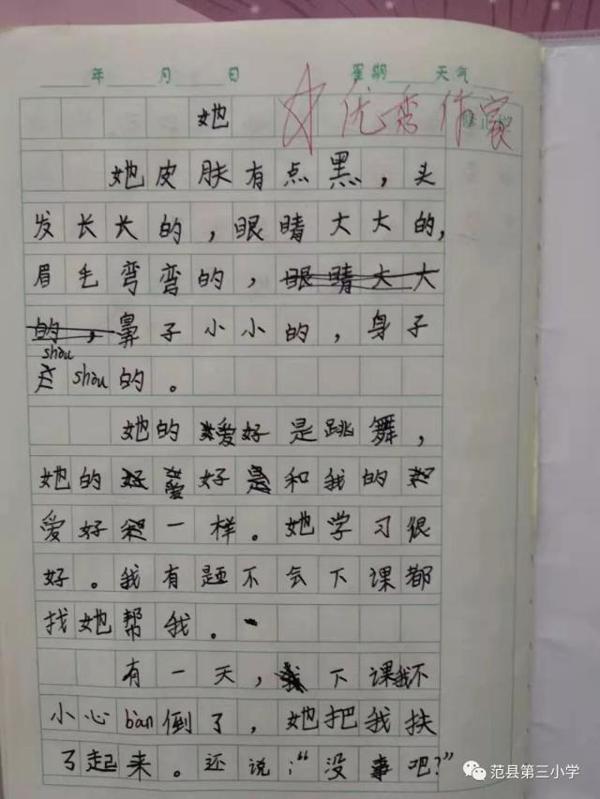 年 月 日 星期 天气
她
优秀作家
她皮肤有点黑，头
发长长的，眼睛大大的，
眉毛弯弯的，眼睛大大
的，鼻子小小的，身子
shòu
shòu的。
她的爱好是跳舞，
她的爱好和我的
爱好一样。她学习很
好。我有题不会下课都
找她帮我。
有一天，我下课我不
小心bàn倒了，她把我扶
了起来。还说：“没事吧？”
范县第三小学